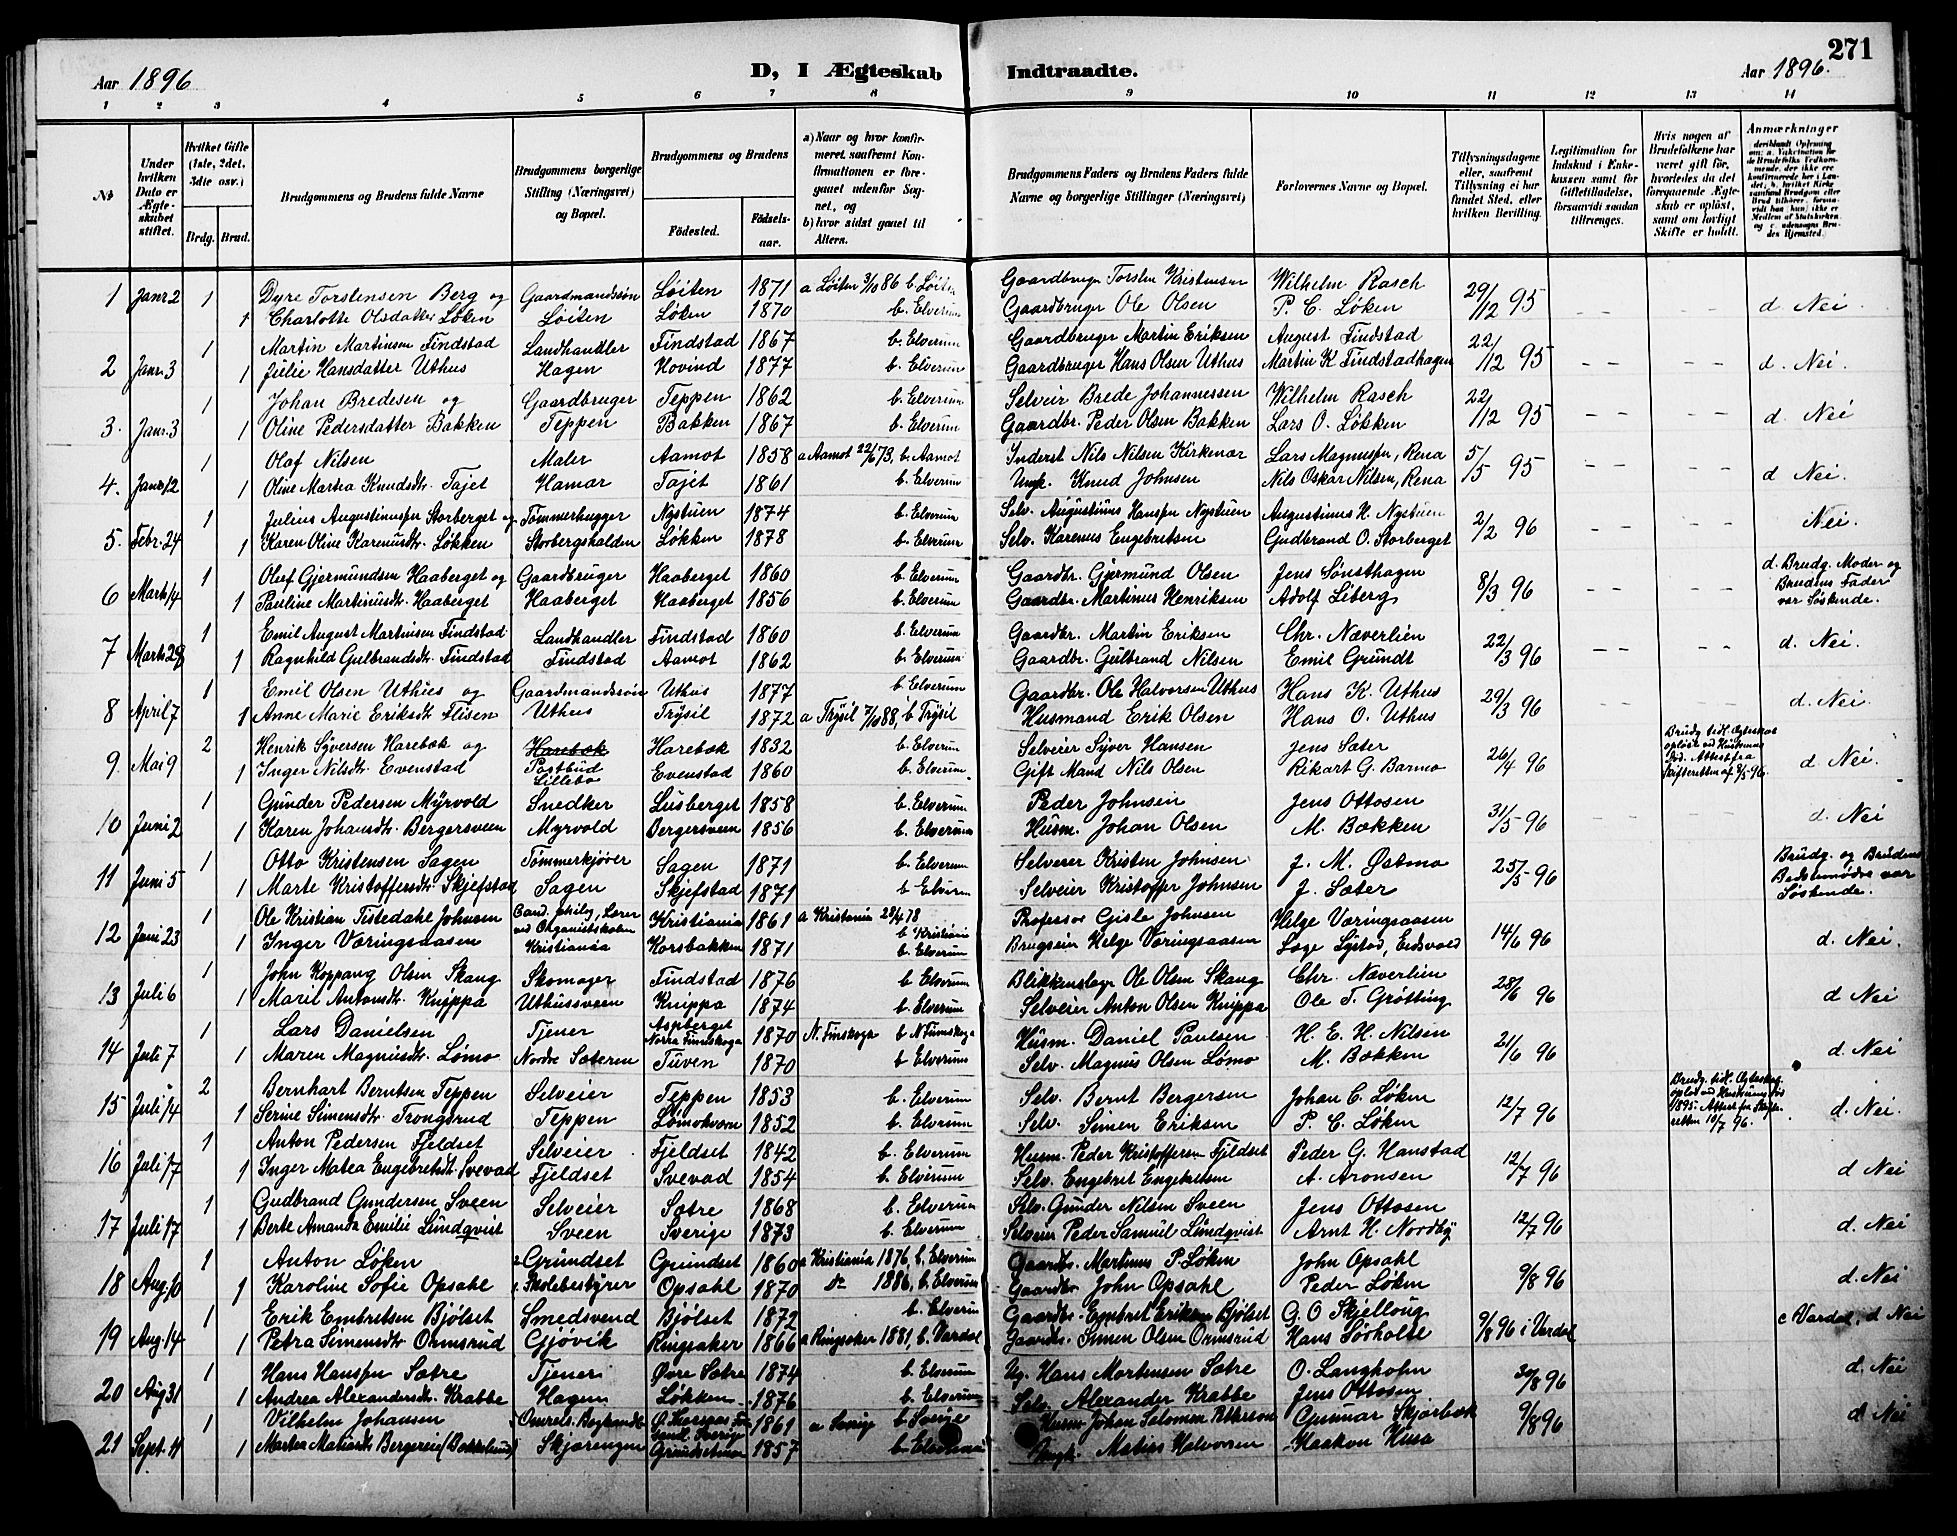 271
Aar 1896
D, I Ægteskab Indtraadte.
Aar 1896.
1 2 3 4 5 6 7 8 9 10 11 12 13 14
№
Under hvilken Dato er Ægteskabet stiftet.
Hvilket Gifte (1ste, 2det, 3die osv.)
Brdg. Brud.
Brudgommens og Brudens fulde Navne
Brudgommens borgerlige Stilling (Næringsvei) og Bopæl.
Brudgommens og Brudens
Fødested. Fødselsaar.
a) Naar og hvor konfirmeret, saafremt Konfirmationen er foregaaet udenfor Sognet, og
b) hvor sidst gaaet til Alters.
Brudgommens Faders og Brudens Faders fulde Navne og borgerlige Stillinger (Næringsvei)
Forlovernes Navne og Bopæl.
Tillysningsdagene eller, saafremt Tillysning ei har fundet Sted, efter hvilken Bevilling.
Legitimation for Indskud i Enkekassen samt for Giftetilladelse, forsaavidt saadan tiltrænges.
Hvis nogen af Brudefolkene har været gift før, hvorledes da det foregaaende Ægteskab er opløst, samt om lovligt Skifte er holdt.
Anmærkninger
1 Janr 2 1 Dyre Torstensen Berg og Gaardmandssøn Løiten 1871 a Løiten 3/10 86 b Løiten Gaardbruger Torsten Kristensen Wilhelm Rasch 29/12 95 d. Nei.
1 Charlotte Olsdatter Løken Løiten Løken 1870 b. Elverum Gaardbruger Ole Olsen P. C. Løken
2 Janr. 3 1 Martin Martinsen Findstad Landhandler Findstad 1867 b. Elverum Gaardbruger Martin Eriksen August Findstad 22/12 95 d. Nei.
1 Julie Hansdatter Uthus Hagen Hovind 1877 b. Elverum Gaardbruger Hans Olsen Uthus Martin K Findstadhagen
3. Janr. 3 1 Johan Bredesen og Gaardbruger Teppen 1862 b. Elverum Selveir Brede Johannessen Wilhelm Rasch 22/12 95 d. Nei
1 Oline Pedersdatter Bakken Teppen Bakken 1867 b. Elverum Gaardbr. Peder Olsen Bakken Lars O. Løkken
4. Janr. 12 1 Olaf Nilsen Maler Aamot 1858 a Aamot 22/6 73, b. Aamot Inderst Nils Nilsen Kirkenær Lars Magnussen, Rena 5/5 95 d Nei.
1 Oline Martea Knudsdtr. Tajet Hamar Tajet 1861 b. Elverum Ungk. Knud Johnsen Nils Oskar Nilsen, Rena
5. Febr. 24 1 Julius Augustinussen Storberget og Tømmerhugger Nystuen 1874 b. Elverum Selv. Augustinus Hanssen Nystuen Augustinus H. Nystuen 2/2 96 Nei.
1 Karen Oline Karenusdtr. Løkken Storbergshalden Løkken 1878 b. Elverum Selv. Karenus Engebretsen Gudbrand O. Storberget
6 Marts 14 1 Oluf Gjermundsen Haaberget og Gaardbruger Haaberget 1860 b. Elverum Gaardbr. Gjermund Olsen Jens Sønsthagen 8/3 96 d. Brudg. Moder og Brudens Fader var Søskende.
1 Pauline Martinusdtr. Haaberget Haaberget Haaberget 1856 b. Elverum Gaardbr. Martinus Henriksen Adolf Liberg
7 Marts 29 1 Emil August Martinsen Findstad Landhandler Findstad 1860 b. Elverum Gaardbr. Martin Eriksen Chr. Næverlien 22/3 96 d. Nei.
1 Ragnhild Gulbrandsdtr. Findstad Findstad Aamot 1862 b. Elverum Gaardbr. Gulbrand Nilsen Emil Grundt
8 April 7 1 Emil Olsen Uthus og Gaardmandssøn Uthus 1877 b. Elverum Gaardbr. Ole Halvorsen Uthus Hans K. Uthus 29/3 96 d. Nei.
1 Anne Marie Eriksdtr. Flisen Uthus Trysil 1872 a Trysil 7/10 88, b Trysil Husmand Erik Olsen Hans O. Uthus
9. Mai 9 2 Henrik Syversen Harebæk og Harebæk Harebæk 1832 b. Elverum Selveier Syver Hansen Jens Sæter 26/4 96 Brudg. tidl. Ægteskab opløst ved Hustruens Død. Attest fra Skifteretten af 8/5 96. d. Nei.
1 Inger Nilsdtr. Evenstad Postbud Lillebo Evenstad 1860 b. Elverum. Gift Mand Nils Olsen Rikart G. Barmo
10 Juni 2 1 Gunder Pedersen Myrvold Snedker Lusberget 1858 b. Elverum Peder Johnsen Jens Ottosen 31/5 96 d. Nei
1 Karen Johansdtr. Bergersveen Myrvold Bergersveen 1856 b. Elverum Husm. Johan Olsen M. Bækken
11 Juni 5 1 Otto Kristensen Sagen Tømmerkjører Sagen 1871 b. Elverum Selveier Kristen Johnsen J. M. Østmo 25/5 96 Brudg. og Brudens Bedstemødre var Søskende.
1 Marte Kristoffersdtr. Skjefstad Sagen Skjefstad 1871 b Elverum Selveier Kristoffer Johnsen J. Sæter
12 Juni 23 1 Ole Kristian Tistedahl Johnsen Cand. philog, Lærer ved Organistskolen Kristiania 1861 a Kristiania 28/4 78 b Kristiania Professor Gisle Johnsen Helge Væringsaasen 14/6 96 d. Nei.
1 Inger Væringsaasen Kristiania Korsbakken 1871 b. Elverum Brugseier Helge Væringsaasen Læge Lystad, Eidsvold
13 Juli 6 1 John Koppang Olsen Skang Skomager Findstad 1876 b. Elverum Blikkenslager Ole Olsen Skang Chr. Næverlien 28/6 96 d Nei
1 Maril Antonsdtr. Knippa Uthussveen Knippa 1874 b. Elverum Selveier Anton Olsen Knippa Ole T. Grøtting
14 Juli 7 1 Lars Danielsen Tjener Aspberget Norra Finnskoga 1870 N. Finskoga b N Finnskoga Husm. Daniel Paulsen H. E. H. Nilsen 21/6 96 d. Nei
1 Maren Magnusdtr. Lømo Nordre Sæteren Tuven 1870 b Elverum Selv. Magnus Olsen Lømo M. Bækken
15 Juli 14 2 Bernhart Berntsen Teppen Selveier Teppen 1853 b. Elverum Selv. Bernt Bergersen Johan C. Løken 12/7 96 Brudg. tidl. Ægteskab opløst ved Hustruens Død 1895. Attest fra Skifteretten 10/7 96. d. Nei.
1 Serine Simensdtr. Trongsrud Teppen Lømokværn 1852 b. Elverum Selv. Simen Eriksen P. C. Løken
16 Juli 17 1 Anton Pedersen Fjeldset Selveier Fjeldset 1842 b. Elverum Husm. Peder Kristoffersen Fjeldset Peder G. Hanstad 12/7 96 d Nei
1 Inger Matea Engebretsdtr. Svevad Fjeldset Svevad 1854 b. Elverum Selv. Engebret Engebretsen A. Aronsen
17 Juli 17 1 Gudbrand Gundersen Sveen Selveier Sætre 1868 b. Elverum Selv. Gunder Nilsen Sveen Jens Ottosen 12/7 96 d. Nei
1 Berte Amanda Emilie Lundqvist Sveen Sverige 1873 b. Elverum Selveier Peder Samuel Lundqvist Arnt H. Nordby
18 Aug. 10 1 Anton Løken Grundset Grundset 1860 a Kristiania 1876, b. Elverum Gaardbr. Martinus P. Løken John Opsahl 9/8 96 d. Nei
1 Karoline Sofie Opsahl Skolebestyrer Opsahl 1870 do 1886, b. Elverum Gaardbr John Opsahl Peder Løken
19 Aug. 14 1 Erik Embretsen Bjølset Smedsvend Bjølset 1872 b. Elverum Gaardbr. Embret Eriksen Bjølset G. O Skjelloug 9/8 96 i Vardal c Vardal, d Nei
1 Petra Simensdtr Ormsrud Gjøvik Ringsaker 1866 a Ringsaker 1881, b. Vardal Gaardbr. Simen Olsen Ormsrud Hans Sørholte
20 Aug 31 1 Hans Hanssen Sætre Tjener Øvre Sætre 1874 b. Elverum Ug. Hans Mortensen Sætre O. Langholm 30/8 96 d. Nei
1 Andrea Alexandersdtr. Krabbe Hagen Løkken 1876 b. Elverum Selv. Alexander Krabbe Jens Ottosen
21 Sept. 4 1 Vilhelm Johansen 1861 a Sverige b Sverige Husm Johan Salomon Petterson Gunnar Skjærbæk 9/8 96 d Nei
1 Martea Matiasdtr Bergereie Skjærengen Grundsetmoen 1857 b. Elverum Ungk. Matias Halvorsen Haakon Husa